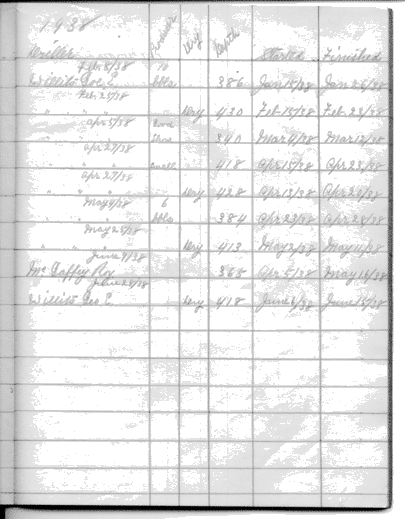 1938
Driller Producer Dry Depth Started Finished
Feb 8/38 10
Willits Geo. E. bbls 386 Jan 15/38 Jan 26/38
Feb. 25/38
" " " Dry 430 Feb 15/38 Feb. 23/38
Apr 5/38
" " " 340 Mar 4/38 Mar 12/38
Apr 27/38
" " " Small 418 Apr 15/38 Apr 23/38
Apr 27/38
" " " Dry 428 Apr 13/38 Apr 25/38
May 4/38 6
" " " bbls 384 Apr 23/38 Apr 28/38
May 25/38
" " " Dry 413 May 2/38 May 11/38
June 9/38
Mc Gaffey Roy 365 Apr 5/38 May 16/38
June 28/38
Willits Geo E. Dry 418 June 6/38 June 15/38